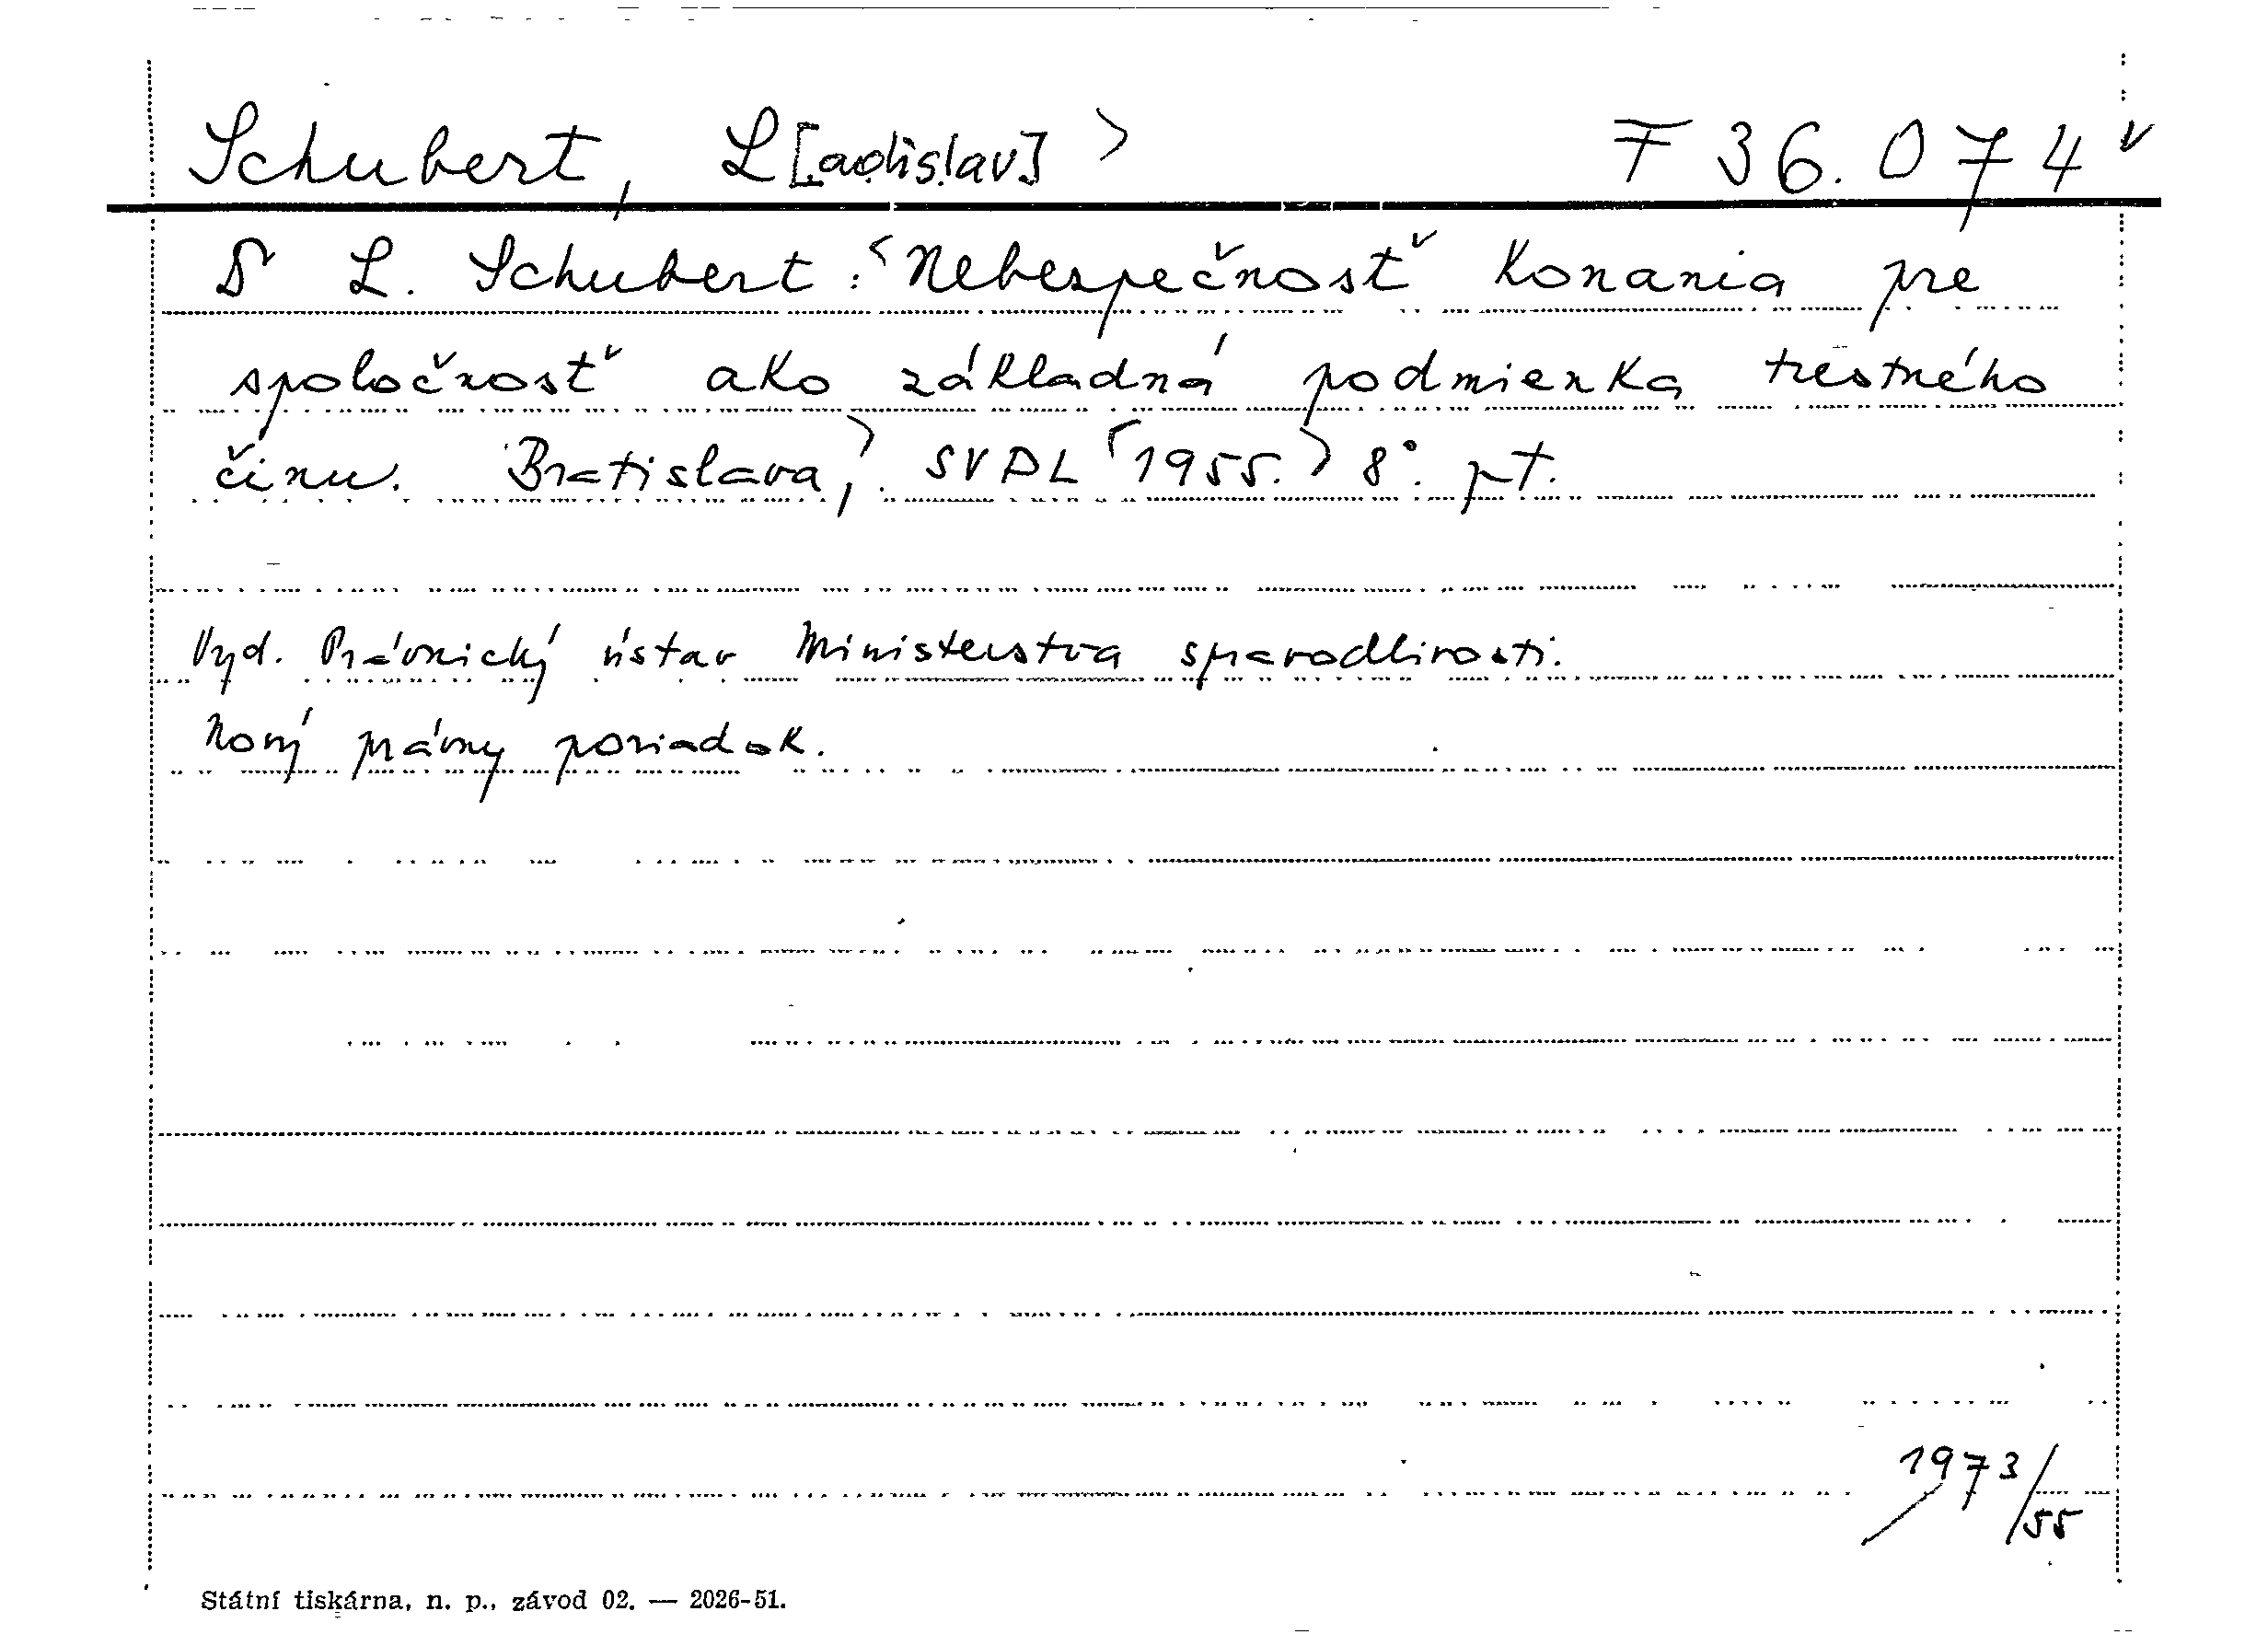 Schubert, L[adislav] > F 36.074 v
Dr L. Schubert: <Nebezpečnosť konania pre
spoločnosť ako základná podmienka trestného
činu. Bratislava,> SVPL <1955.> 8°. pt.
Vyd. Právnický ústav Ministerstva spravodlivosti.
Nový právny poriadok.
1973/55
Státní tiskárna, n. p., závod 02. — 2026-51.